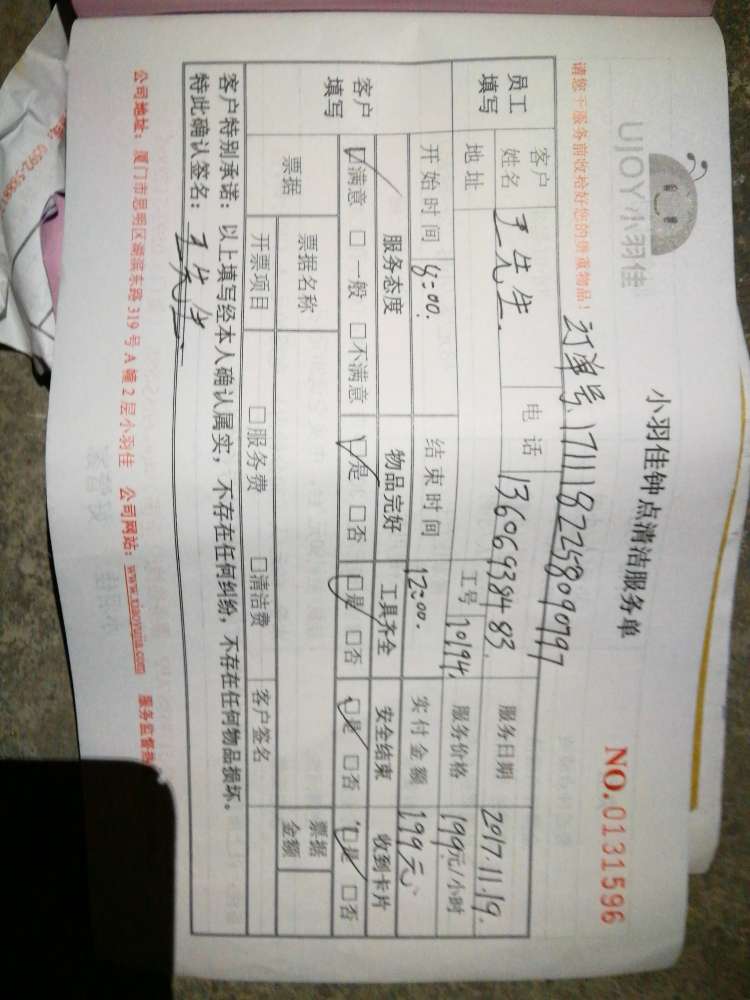 UJOY小羽佳
小羽佳钟点清洁服务单
NO.0131596
请您于服务前收拾好您的贵重物品!
订单号:1711182258090797
员工填写 客户姓名 王先生. 电话 13606938483. 服务日期 2017.11.19.
地址 工号 20194. 服务价格 199元/小时
开始时间 8:00. 结束时间 12:00. 实付金额 199元
客户填写 服务态度 物品完好 工具齐全 安全结束 收到卡片
☑满意 □一般 □不满意 ☑是 □否 ☑是 □否 ☑是 □否 ☑是 □否
票据 票据名称 票据金额
开票项目 □服务费 □清洁费 客户签名
客户特别承诺:以上填写经本人确认属实,不存在任何纠纷,不存在任何物品损坏。
特此确认签名:王先生
公司地址:厦门市思明区湖滨东路319号A幢2层小羽佳 公司网站:www.xiaoyujia.com 服务监督热